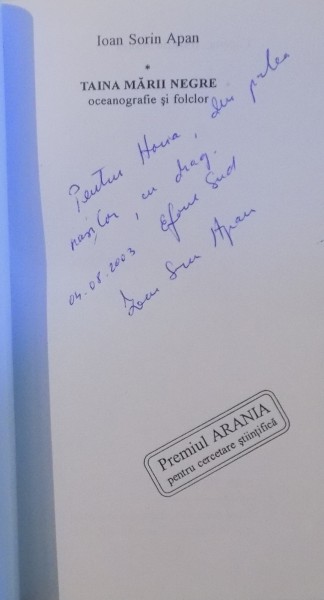 Ioan Sorin Apan
*
TAINA MĂRII NEGRE
oceanografie și folclor
Pentru Horia, din partea
nașilor, cu drag.
04.08.2003 Eforie Sud
Ioan Sorin Apan
Premiul ARANIA
pentru cercetare științifică